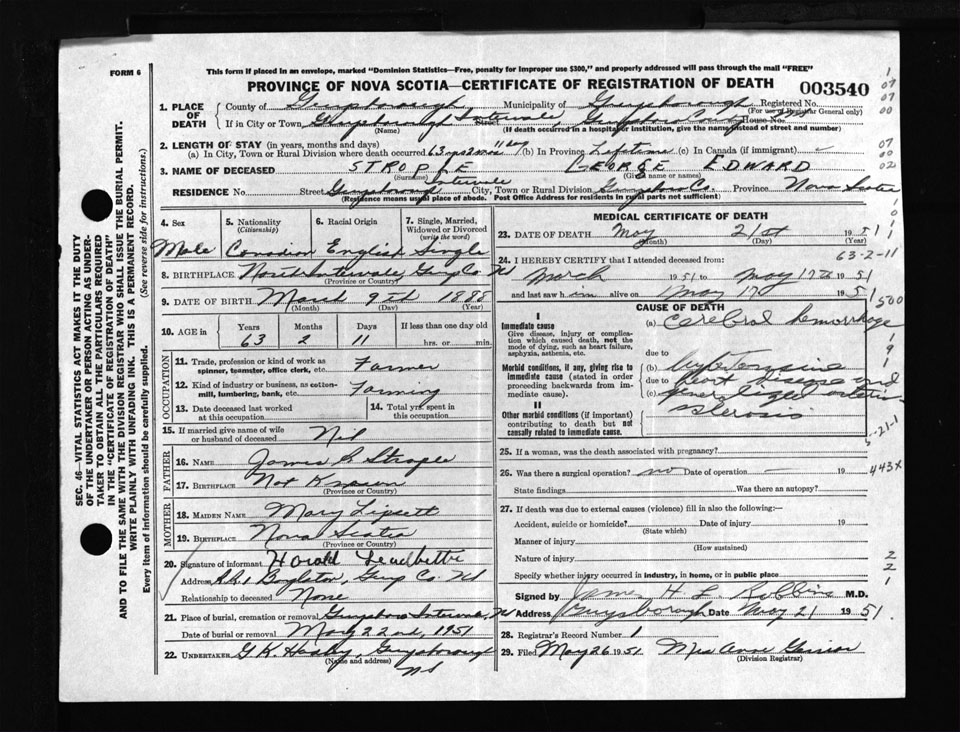 This form if placed in an envelope, marked "Dominion Statistics—Free, penalty for improper use $300," and properly addressed will pass through the mail "FREE"
FORM 6
PROVINCE OF NOVA SCOTIA—CERTIFICATE OF REGISTRATION OF DEATH
003540
1. PLACE OF DEATH
County of Guysborough, Municipality of Guysborough Registered No.
(For use of Registrar General only)
If in City or Town Guysborough Intervale Street House No.
(Name) (If death occurred in a hospital or institution, give the name instead of street and number)
2. LENGTH OF STAY (in years, months and days)
(a) In City, Town or Rural Division where death occurred 63 yrs 2 mos 11 dy (b) In Province Lifetime (c) In Canada (if immigrant)
3. NAME OF DECEASED STROPLE GEORGE EDWARD
(Surname) (Given name or names)
RESIDENCE No. Street Guysboro Intervale City, Town or Rural Division Guysboro Co. Province Nova Scotia
(Residence means usual place of abode. Post Office Address for residents in rural parts not sufficient)
4. Sex
5. Nationality (Citizenship)
6. Racial Origin
7. Single, Married, Widowed or Divorced (write the word)
Male Canadian English Single
8. BIRTHPLACE Intervale, Guys Co NS
(Province or Country)
9. DATE OF BIRTH March 9th 1888
(Month) (Day) (Year)
10. AGE in Years Months Days If less than one day old
63 2 11 hrs. or min.
OCCUPATION
11. Trade, profession or kind of work as spinner, teamster, office clerk, etc. Farmer
12. Kind of industry or business, as cotton-mill, lumbering, bank, etc. Farming
13. Date deceased last worked at this occupation
14. Total yrs. spent in this occupation
15. If married give name of wife or husband of deceased Nil
FATHER
16. NAME James Strople
17. BIRTHPLACE Not Known
(Province or Country)
MOTHER
18. MAIDEN NAME Mary Lipsett
19. BIRTHPLACE Nova Scotia
(Province or Country)
20. Signature of informant Harold Leadbetter
Address R.R.1 Boylston, Guys Co. NS
Relationship to deceased None
21. Place of burial, cremation or removal Guysboro Intervale, NS
Date of burial or removal May 22nd, 1951
22. UNDERTAKER G K Guysborough NS
(Name and address)
MEDICAL CERTIFICATE OF DEATH
23. DATE OF DEATH May 21st 1951
(Month) (Day) (Year)
63-2-11
24. I HEREBY CERTIFY that I attended deceased from:
March 1951 to May 17th 1951
and last saw him alive on May 17 1951
CAUSE OF DEATH
I
Immediate cause
Give disease, injury or complication which caused death, not the mode of dying, such as heart failure, asphyxia, asthenia, etc.
(a) Cerebral hemorrhage
due to
Morbid conditions, if any, giving rise to immediate cause (stated in order proceeding backwards from immediate cause).
(b) hypertensive
due to heart disease and
(c) generalized arterio
sclerosis
II
Other morbid conditions (if important) contributing to death but not causally related to immediate cause.
5-21-1
25. If a woman, was the death associated with pregnancy?
26. Was there a surgical operation? no Date of operation — 19
443x
State findings Was there an autopsy?
27. If death was due to external causes (violence) fill in also the following:—
Accident, suicide or homicide? Date of injury 19
(State which)
Manner of injury
(How sustained)
Nature of injury
Specify whether injury occurred in industry, in home, or in public place
Signed by James H L Robbins M.D.
Address Guysborough Date May 21 1951
28. Registrar's Record Number 1
29. Filed May 26 1951 Mrs Anne
(Division Registrar)
SEC. 46—VITAL STATISTICS ACT MAKES IT THE DUTY OF THE UNDERTAKER OR PERSON ACTING AS UNDERTAKER TO OBTAIN ALL THE PARTICULARS REQUIRED IN THE "CERTIFICATE OF REGISTRATION OF DEATH" AND TO FILE THE SAME WITH THE DIVISION REGISTRAR WHO SHALL ISSUE THE BURIAL PERMIT.
WRITE PLAINLY WITH UNFADING INK. THIS IS A PERMANENT RECORD.
Every item of information should be carefully supplied. (See reverse side for instructions.)